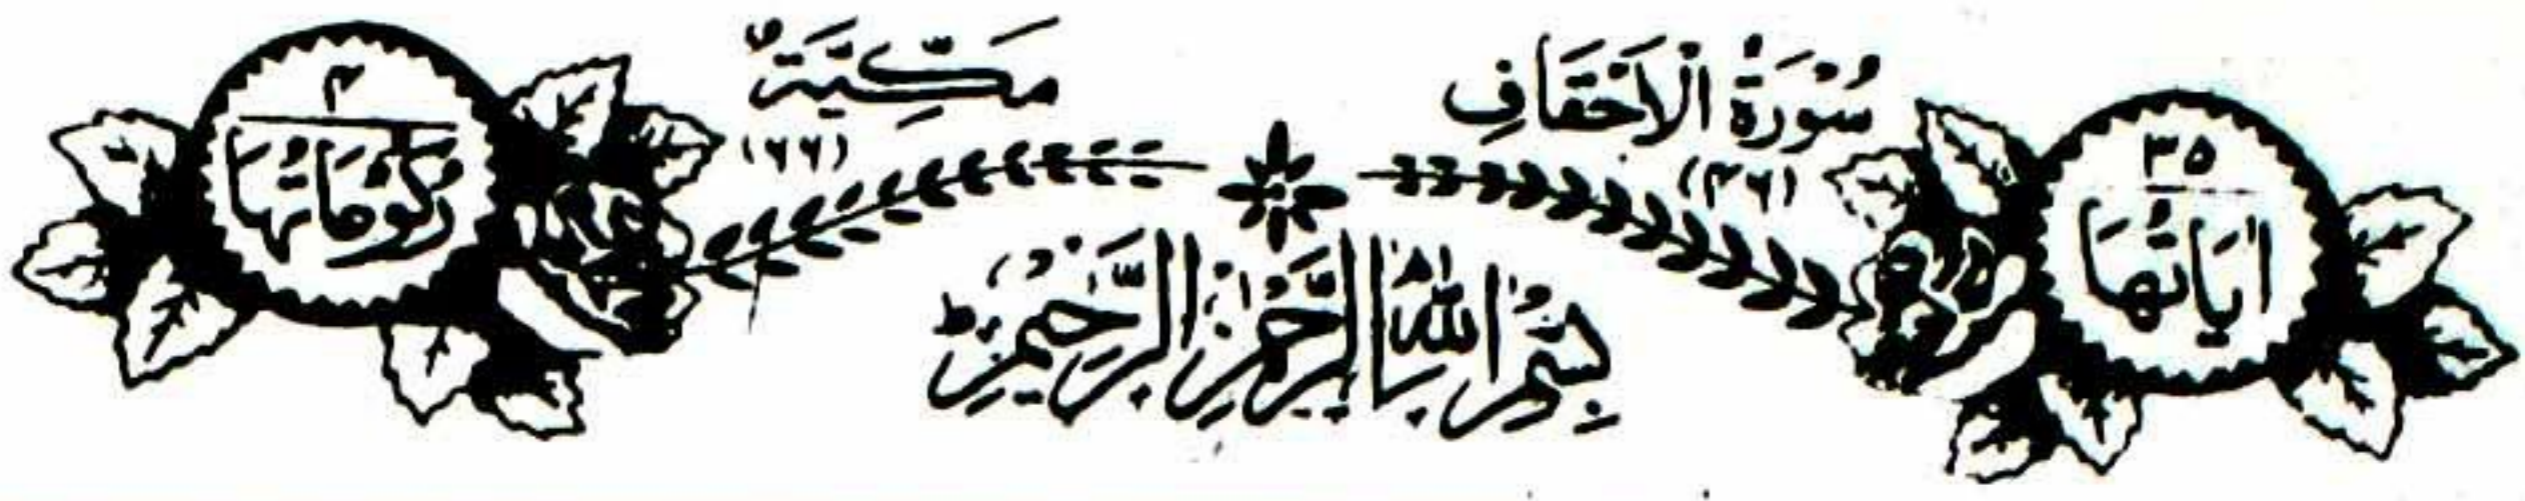 ۳۵
اٰيَاتُهَا
سُوْرَةُ الْاَحْقَافِ
(۴۶)
مَكِّيَّةٌ
(۶۶)
۴
رُكُوْعَاتُهَا
بِسْمِ اللّٰهِ الرَّحْمٰنِ الرَّحِيْمِ ط